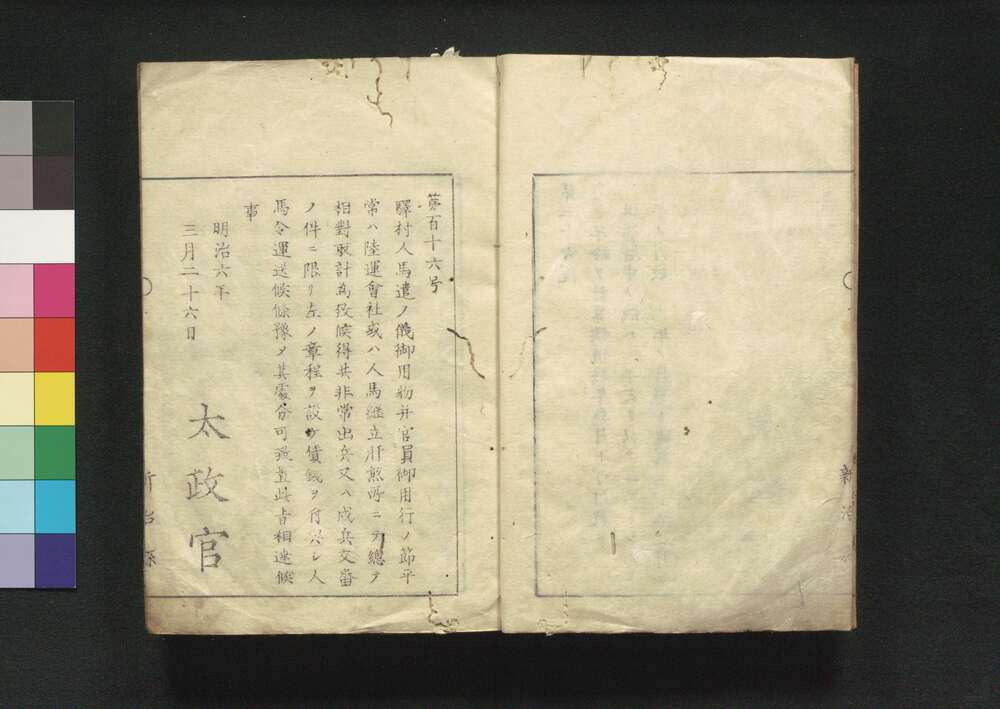 第百十六号
驛村人馬遣ノ儀御用物并官員御用行ノ節平
常ハ陸運會社或ハ人馬継立所煎所ニテ總テ
相對取計為致候得共非常出兵又ハ戍兵交番
ノ件ニ限リ左ノ章程ヲ設ケ賃銭ヲ付與シ人
馬令運送候條豫メ其處分可致置此旨相達候
事
明治六年
三月二十六日
太政官
新治縣